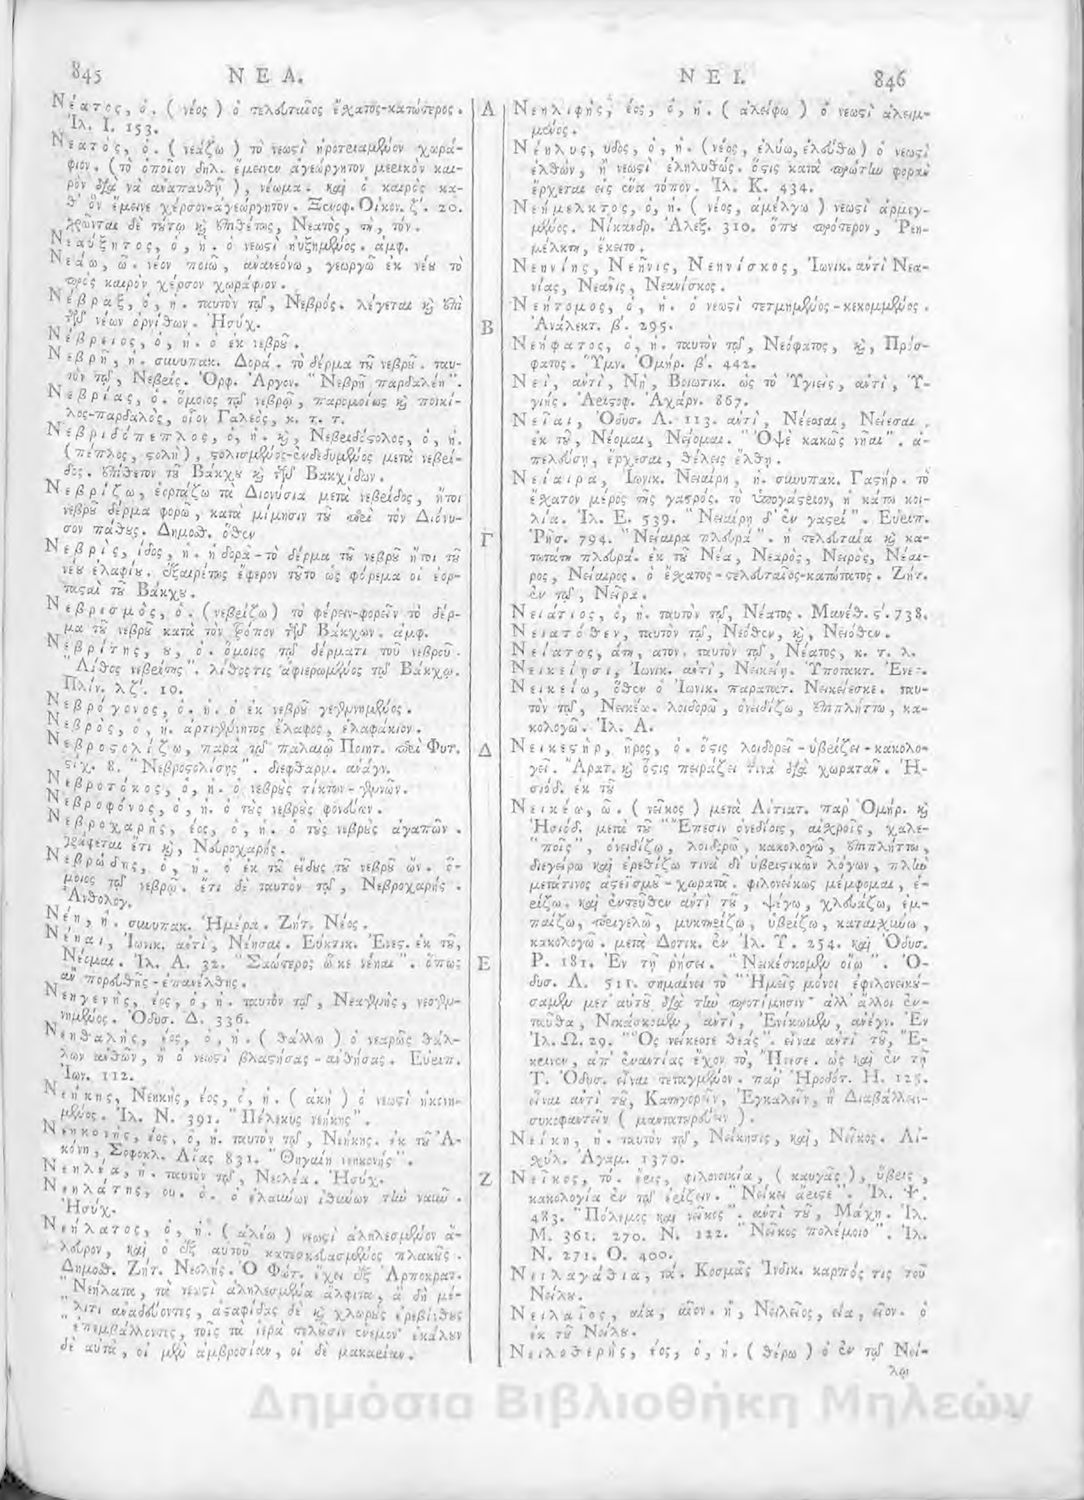 845 ΝΕΑ.
Νέατος, ὁ. (νέος) ὁ τελευταῖος ἔχατος-κατώτερος.
Ἰλ. Ι. 153.
Νεατὸς, ὁ. (νεάζω) τὸ νεωστὶ ἠροτριαμένον χωρά-
φιον. (τὸ ὁποῖον δηλ. ἔμεινεν ἀγεώργητον μερικὸν και-
ρὸν διὰ νὰ ἀναπαυθῇ), νέωμα. καὶ ὁ καιρὸς κα-
θ' ὃν ἔμεινε χέρσον-ἀγεώργητον. Ξενοφ. Οἰκον. ζ'. 20.
χρῶνται δὲ τούτῳ καὶ ἐπιθέτως, Νεατὸς, τὴ, τόν.
Νεαύξητος, ὁ, ἡ. ὁ νεωστὶ ηὐξημένος. ἀμφ.
Νεάω, ῶ. νέον ποιῶ, ἀνανεόνω, γεωργῶ ἐκ νέου τὸ
πρὸς καιρὸν χέρσον χωράφιον.
Νέβραξ, ὁ, ἡ. ταυτὸν τῷ, Νεβρός. λέγεται καὶ ἐπὶ
τῶν νέων ὀρνίθων. Ἡσύχ.
Νέβρειος, ὁ, ἡ. ὁ ἐκ νεβροῦ.
Νεβρῆ, ἡ. συνυπακ. Δορά. τὸ δέρμα τοῦ νεβροῦ. ταυ-
τὸν τῷ, Νεβρίς. Ὀρφ. Ἀργον. "Νεβρῆ παρδαλέη".
Νεβρίας, ὁ. ὅμοιος τῷ νεβρῷ, παρομοίως καὶ ποικί-
λος-παρδαλὸς, οἷον Γαλεὸς, κ. τ. τ.
Νεβριδόπεπλος, ὁ, ἡ. καὶ, Νεβριδόστολος, ὁ, ἡ.
(πέπλος, στολή), στολισμένος-ἐνδεδυμένος μετὰ νεβρί-
δος. ἐπίθετον τοῦ Βάκχου καὶ τῶν Βακχίδων.
Νεβρίζω, ἑορτάζω τὰ Διονύσια μετὰ νεβρίδος, ἤτοι
νεβροῦ δέρμα φορῶ, κατὰ μίμησιν τοῦ περὶ τὸν Διόνυ-
σον πάθους. Δημοσθ. ὅθεν
Νεβρὶς, ίδος, ἡ. ἡ δορὰ-τὸ δέρμα τοῦ νεβροῦ ἤτοι τοῦ
νέου ἐλαφίου. ἐξαιρέτως ἔφερον τοῦτο ὡς φόρεμα οἱ ἑορ-
τασταὶ τοῦ Βάκχου.
Νεβρισμὸς, ὁ. (νεβρίζω) τὸ φέρειν-φορεῖν τὸ δέρ-
μα τοῦ νεβροῦ κατὰ τὸν τρόπον τῶν Βάκχων. ἀμφ.
Νεβρίτης, ου, ὁ. ὅμοιος τῷ δέρματι τοῦ νεβροῦ.
"Λίθος νεβρίτης". λίθος τις ἀφιερωμένος τῷ Βάκχῳ.
Πλίν. λζ'. 10.
Νεβρόγονος, ὁ, ἡ. ὁ ἐκ νεβροῦ γεγεννημένος.
Νεβρὸς, ὁ, ἡ. ἀρτιγέννητος ἔλαφος, ἐλαφάκιον.
Νεβροστολίζω, παρὰ τῷ παλαιῷ Ποιητ. περὶ Φυτ.
στίχ. 8. "Νεβροστολίσης". διεφθαρμ. ἀνάγν.
Νεβροτόκος, ὁ, ἡ. ὁ νεβροὺς τίκτων-γεννῶν.
Νεβροφόνος, ὁ, ἡ. ὁ τοὺς νεβροὺς φονεύων.
Νεβροχαρὴς, έος, ὁ, ἡ. ὁ τοὺς νεβροὺς ἀγαπῶν.
γράφεται ἔτι καὶ, Νευροχαρής.
Νεβρώδης, ὁ, ἡ. ὁ ἐκ τοῦ εἴδους τοῦ νεβροῦ ὤν. ὅ-
μοιος τῷ νεβρῷ. ἔτι δὲ ταυτὸν τῷ, Νεβροχαρής.
Ἀνθολογ.
Νέη, ἡ. συνυπακ. Ἡμέρα. Ζήτ. Νέος.
Νέηαι, Ἰωνικ. ἀντὶ, Νέησαι. Εὐκτικ. Ἐνεστ. ἐκ τοῦ,
Νέομαι. Ἰλ. Α. 32. "Σαώτερος ὥς κε νέηαι". ὅπως
ἂν πορευθῇς-ἐπανέλθῃς.
Νεηγενὴς, έος, ὁ, ἡ. ταυτὸν τῷ, Νεαγενὴς, νεογεν-
νημένος. Ὀδυσ. Δ. 336.
Νεηθαλὴς, έος, ὁ, ἡ. (θάλλω) ὁ νεαρῶς θάλ-
λων ἀνθῶν, ἢ ὁ νεωστὶ βλαστήσας-ἀνθήσας. Εὐριπ.
Ἴων. 112.
Νεήκης, Νεηκὴς, έος, ὁ, ἡ. (ἀκὴ) ὁ νεωστὶ ἠκονη-
μένος. Ἰλ. Ν. 391. "Πέλεκυς νεήκης".
Νεηκονὴς, έος, ὁ, ἡ. ταυτὸν τῷ, Νεήκης. ἐκ τοῦ Ἀ-
κόνη, Σοφοκλ. Αἴας 831. "Θηγαίη νεηκονής".
Νεηλέα, ἡ. ταυτὸν τῷ, Νεολέα. Ἡσύχ.
Νεηλάτης, ου. ὁ. ὁ ἐλαύνων ἰθύνων τὴν ναῦν.
Ἡσύχ.
Νεήλατος, ὁ, ἡ. (ἀλέω) νεωστὶ ἀληλεσμένον ἄ-
λευρον, καὶ ὁ ἐξ αὐτοῦ κατεσκευασμένος πλακοῦς.
Δημοσθ. Ζήτ. Νεολής. Ὁ Φώτ. ἔχει ἐξ Ἁρποκρατ.
"Νεήλατα, τὰ νεωστὶ ἀληλεσμένα ἄλφιτα, ἃ δὴ μέ-
"λιτι ἀναδεύοντες, ἀσταφίδας δὲ καὶ χλωροὺς ἐρεβίνθους
"ἐπεμβάλλοντες, τοῖς τὰ ἱερὰ τελοῦσιν ἔνεμον ἐκάλουν
δὲ αὐτὰ, οἱ μὲν ἀμβροσίαν, οἱ δὲ μακαρίαν.
Α
Β
Γ
Δ
Ε
Ζ
ΝΕΙ. 846
Νεηλιφὴς, έος, ὁ, ἡ. (ἀλείφω) ὁ νεωστὶ ἀλειμ-
μένος.
Νέηλυς, υδος, ὁ, ἡ. (νέος, ἐλύω, ἐλεύθω) ὁ νεωστὶ
ἐλθὼν, ἢ νεωστὶ ἐληλυθώς. ὅστις κατὰ πρώτην φορὰν
ἔρχεται εἰς ἕνα τόπον. Ἰλ. Κ. 434.
Νεήμελκτος, ὁ, ἡ. (νέος, ἀμέλγω) νεωστὶ ἀρμεγ-
μένος. Νίκανδρ. Ἀλεξ. 310. ὅπου πρότερον, Ῥεη-
μέλκτῃ, ἔκειτο.
Νεηνίης, Νεῆνις, Νεηνίσκος, Ἰωνικ. ἀντὶ Νεα-
νίας, Νεᾶνις, Νεανίσκος.
Νεήτομος, ὁ, ἡ. ὁ νεωστὶ τετμημένος-κεκομμένος.
Ἀνάλεκτ. β'. 295.
Νεήφατος, ὁ, ἡ. ταυτὸν τῷ, Νεόφατος, καὶ, Πρόσ-
φατος. Ὕμν. Ὁμηρ. β'. 442.
Νεὶ, ἀντὶ, Νὴ, Βοιωτικ. ὡς τὸ Ὑγιεὶς, ἀντὶ, Ὑ-
γιής. Ἀριστοφ. Ἀχάρν. 867.
Νεῖαι, Ὀδυσ. Λ. 113. ἀντὶ, Νέεσαι, Νείεσαι.
ἐκ τοῦ, Νέομαι, Νείομαι. "Ὀψὲ κακῶς νῆαι". ἀ-
πελεύσῃ, ἔρχεσαι, θέλεις ἔλθῃ.
Νείαιρα, Ἰωνικ. Νειαίρη, ἡ. συνυπακ. Γαστήρ. τὸ
ἔχατον μέρος τῆς γαστρός. τὸ ὑπογάστριον, ἡ κάτω κοι-
λία. Ἰλ. Ε. 539. "Νειαίρῃ δ' ἐν γαστρί". Εὐριπ.
Ῥησ. 794. "Νείαιρα πλευρά". ἡ τελευταία καὶ κα-
τωτάτη πλευρά. ἐκ τοῦ Νέα, Νεαρὸς, Νειρὸς, Νέαι-
ρος, Νείαιρος. ὁ ἔχατος-τελευταῖος-κατώτατος. Ζήτ.
ἐν τῷ, Νεῖρα.
Νειάτιος, ὁ, ἡ. ταυτὸν τῷ, Νέατος. Μανέθ. ς'. 738.
Νειατόθεν, ταυτὸν τῷ, Νεόθεν, καὶ, Νειόθεν.
Νείατος, άτη, ατον. ταυτὸν τῷ, Νέατος, κ. τ. λ.
Νεικείησι, Ἰωνικ. ἀντὶ, Νεικείῃ. Ὑποτακτ. Ἐνεστ.
Νεικείω, ὅθεν ὁ Ἰωνικ. παρατατ. Νεικείεσκε. ταυ-
τὸν τῷ, Νεικέω. λοιδορῶ, ὀνειδίζω, ἐπιπλήττω, κα-
κολογῶ. Ἰλ. Α.
Νεικεστὴρ, ῆρος, ὁ. ὅστις λοιδορεῖ-ὑβρίζει-κακολο-
γεῖ. Ἄρατ. καὶ ὅστις πειράζει τινὰ διὰ χωρατῶν. Ἡ-
σιόδ. ἐκ τοῦ
Νεικέω, ῶ. (νεῖκος) μετὰ Αἰτιατ. παρ' Ὁμήρ. καὶ
Ἡσιόδ. μετὰ τοῦ "Ἔπεσιν ὀνειδίοις, αἰχροῖς, χαλε-
"ποῖς", ὀνειδίζω, λοιδορῶ, κακολογῶ, ἐπιπλήττω,
διεγείρω καὶ ἐρεθίζω τινὰ δι' ὑβριστικῶν λόγων, πλὴν
μετάτινος ἀστεϊσμοῦ-χωρατᾶ. φιλονείκως μέμφομαι, ἐ-
ρίζω. καὶ ἐντεῦθεν ἀντὶ τοῦ, ψέγω, χλευάζω, ἐμ-
παίζω, περιγελῶ, μυκτηρίζω, ὑβρίζω, καταιχύνω,
κακολογῶ. μετὰ Δοτικ. ἐν Ἰλ. Υ. 254. καὶ Ὀδυσ.
Ρ. 181. Ἐν τῇ ῥήσει. "Νεικέσκομεν οἴω". Ὀ-
δυσ. Λ. 511. σημαίνει τὸ "Ἡμεῖς μόνοι ἐφιλονεικοῦ-
σαμεν μετ' αὐτοῦ διὰ τὴν προτίμησιν" ἀλλ' ἄλλοι ἐν-
ταῦθα, Νικάσκομεν, ἀντὶ, Ἐνίκωμεν, ἀνέγν. Ἐν
Ἰλ. Ω. 29. "Ὃς νείκεσσε θεάς". εἶναι ἀντὶ τοῦ, Ἔ-
κρινεν, ἀπ' ἐναντίας ἔχον τὸ, ᾜνεσε. ὡς καὶ ἐν τῇ
Τ. Ὀδυσ. εἶναι τεταγμένον. παρ' Ἡροδότ. Η. 125.
εἶναι ἀντὶ τοῦ, Κατηγορεῖν, Ἐγκαλεῖν, ἢ Διαβάλλειν-
συκοφαντεῖν (μαντατουρεύειν).
Νείκη, ἡ. ταυτὸν τῷ, Νείκησις, καὶ, Νεῖκος. Αἰ-
σχύλ. Ἀγαμ. 1370.
Νεῖκος, τὸ. ἔρις, φιλονεικία, (καυγᾶς), ὕβρις,
κακολογία ἐν τῷ ἐρίζειν. "Νείκει ἄριστε". Ἰλ. Ψ.
483. "Πόλεμος καὶ νεῖκος". ἀντὶ τοῦ, Μάχη. Ἰλ.
Μ. 361. 270. Ν. 122. "Νεῖκος πολέμοιο". Ἰλ.
Ν. 271. Ο. 400.
Νειλαγάθια, τά. Κοσμᾶς Ἰνδικ. καρπός τις τοῦ
Νείλου.
Νειλαῖος, αία, αῖον. ἢ, Νειλεῖος, εία, εῖον. ὁ
ἐκ τοῦ Νείλου.
Νειλοθερὴς, έος, ὁ, ἡ. (θέρω) ὁ ἐν τῷ Νεί-
λῳ
Δημόσια Βιβλιοθήκη Μηλεών